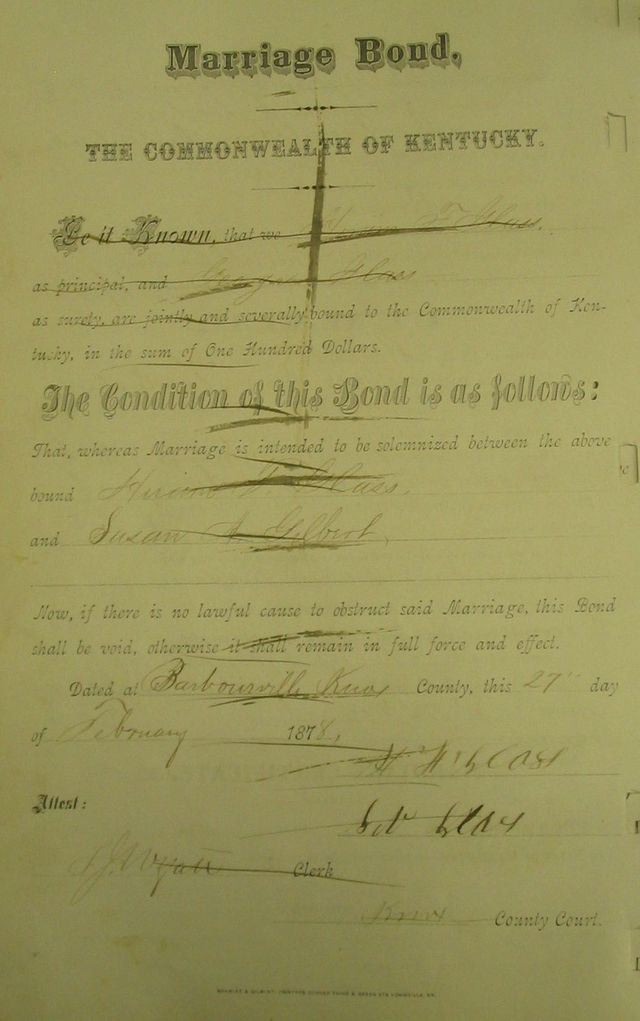 Marriage Bond.
THE COMMONWEALTH OF KENTUCKY.
Be it Known, that we Hiram F. Glass.
as principal, and George Glass
as surety, are jointly and severally bound to the Commonwealth of Ken-
tucky, in the sum of One Hundred Dollars.
The Condition of this Bond is as follows:
That, whereas Marriage is intended to be solemnized between the above
bound Hiram F. Glass.
and Susan A. Gilbert,
Now, if there is no lawful cause to obstruct said Marriage, this Bond
shall be void, otherwise it shall remain in full force and effect.
Dated at Barbourville Knox County, this 27" day
of February 1878,
Attest:
Clerk
Knox County Court.